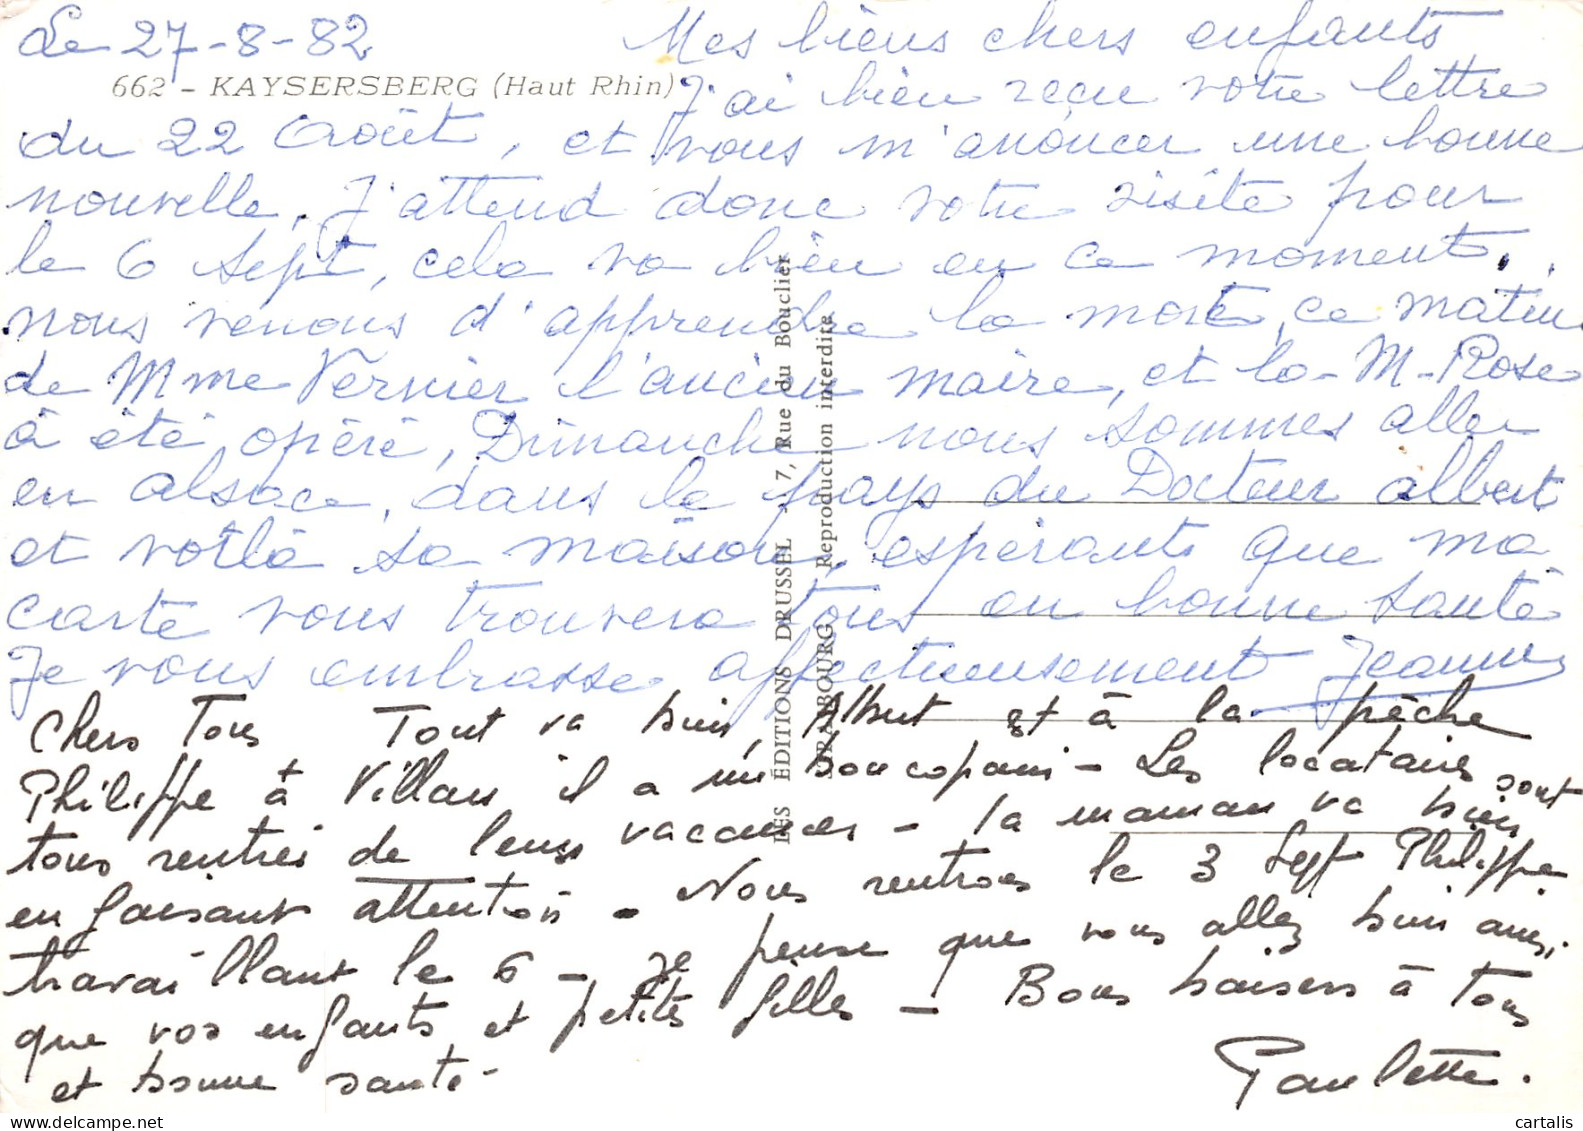 Le 27-8-82
Mes biens chers enfants
662 - KAYSERSBERG (Haut Rhin)
J'ai bien reçu votre lettre
du 22 Août, et vous m'anoncer une bonne
nouvelle. J'attend donc votre visite pour
le 6 Sept, cela va bien en ce moment.
nous venons d'apprendre la mort, ce matin
de Mme Vernier l'ancien maire, et la M-Rose
à été opéré, Dimanche nous sommes aller
en alsace, dans le pays du Docteur albert
et voilà sa maison, espérants que ma
carte vous trouvera tous en bonne santé
Je vous embrasse affectueusement Jeanne
Chers Tous Tout va bien, Albert est à la pêche
Philippe à Villars il a un bon copain - Les locataires sont
tous rentrés de leurs vacances - la maman va bien
en faisant attention - Nous rentrons le 3 Sept Philippe
travaillant le 6 - Je pense que vous allez bien ainsi
que vos enfants et petites filles - Bons baisers à Tous
et bonne santé -
Paulette.
LES ÉDITIONS DRUSSEL - 7, Rue du Bouclier
STRASBOURG Reproduction interdite
cartalis